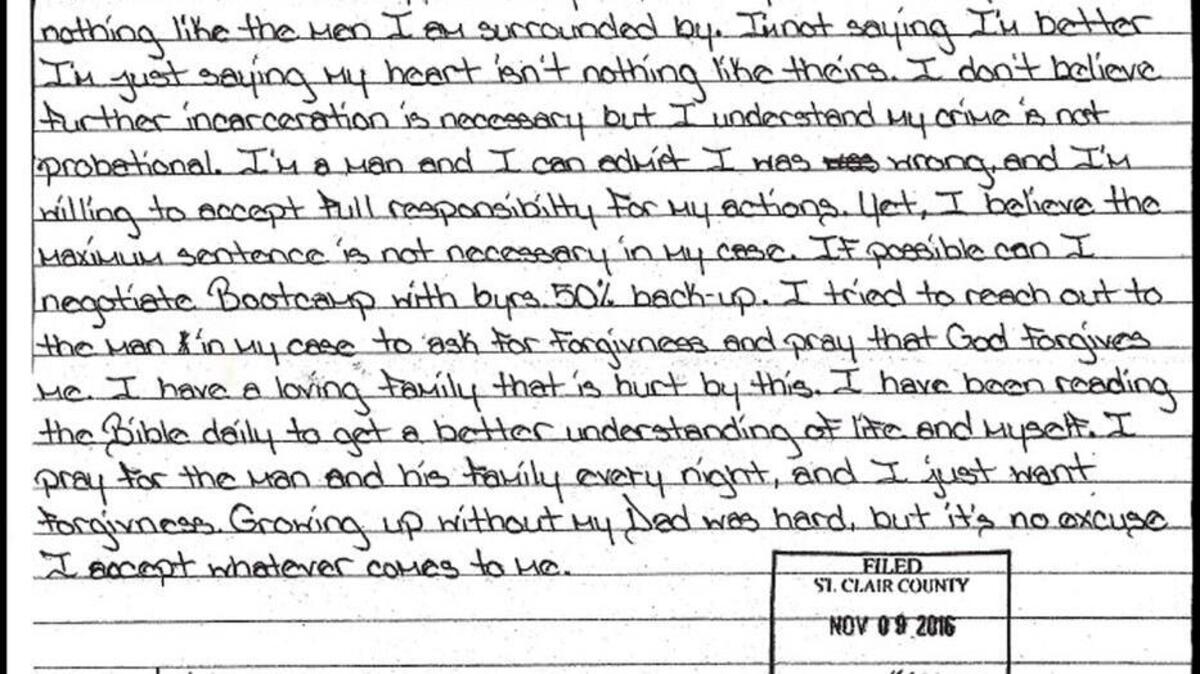 nothing like the men I am surrounded by. I'm not saying I'm better
I'm just saying my heart isn't nothing like theirs. I don't believe
further incarceration is necessary but I understand my crime is not
probational. I'm a man and I can admit I was was wrong, and I'm
willing to accept full responsibilty for my actions. Yet, I believe the
maximum sentence is not necessary in my case. If possible can I
negotiate Bootcamp with 6yrs. 50% back-up. I tried to reach out to
the man in my case to ask for forgivness and pray that God forgives
me. I have a loving family that is hurt by this. I have been reading
the Bible daily to get a better understanding of life and myself. I
pray for the man and his family every night, and I just want
forgivness. Growing up without my Dad was hard, but it's no excuse
I accept whatever comes to me.
FILED
ST. CLAIR COUNTY
NOV 09 2016